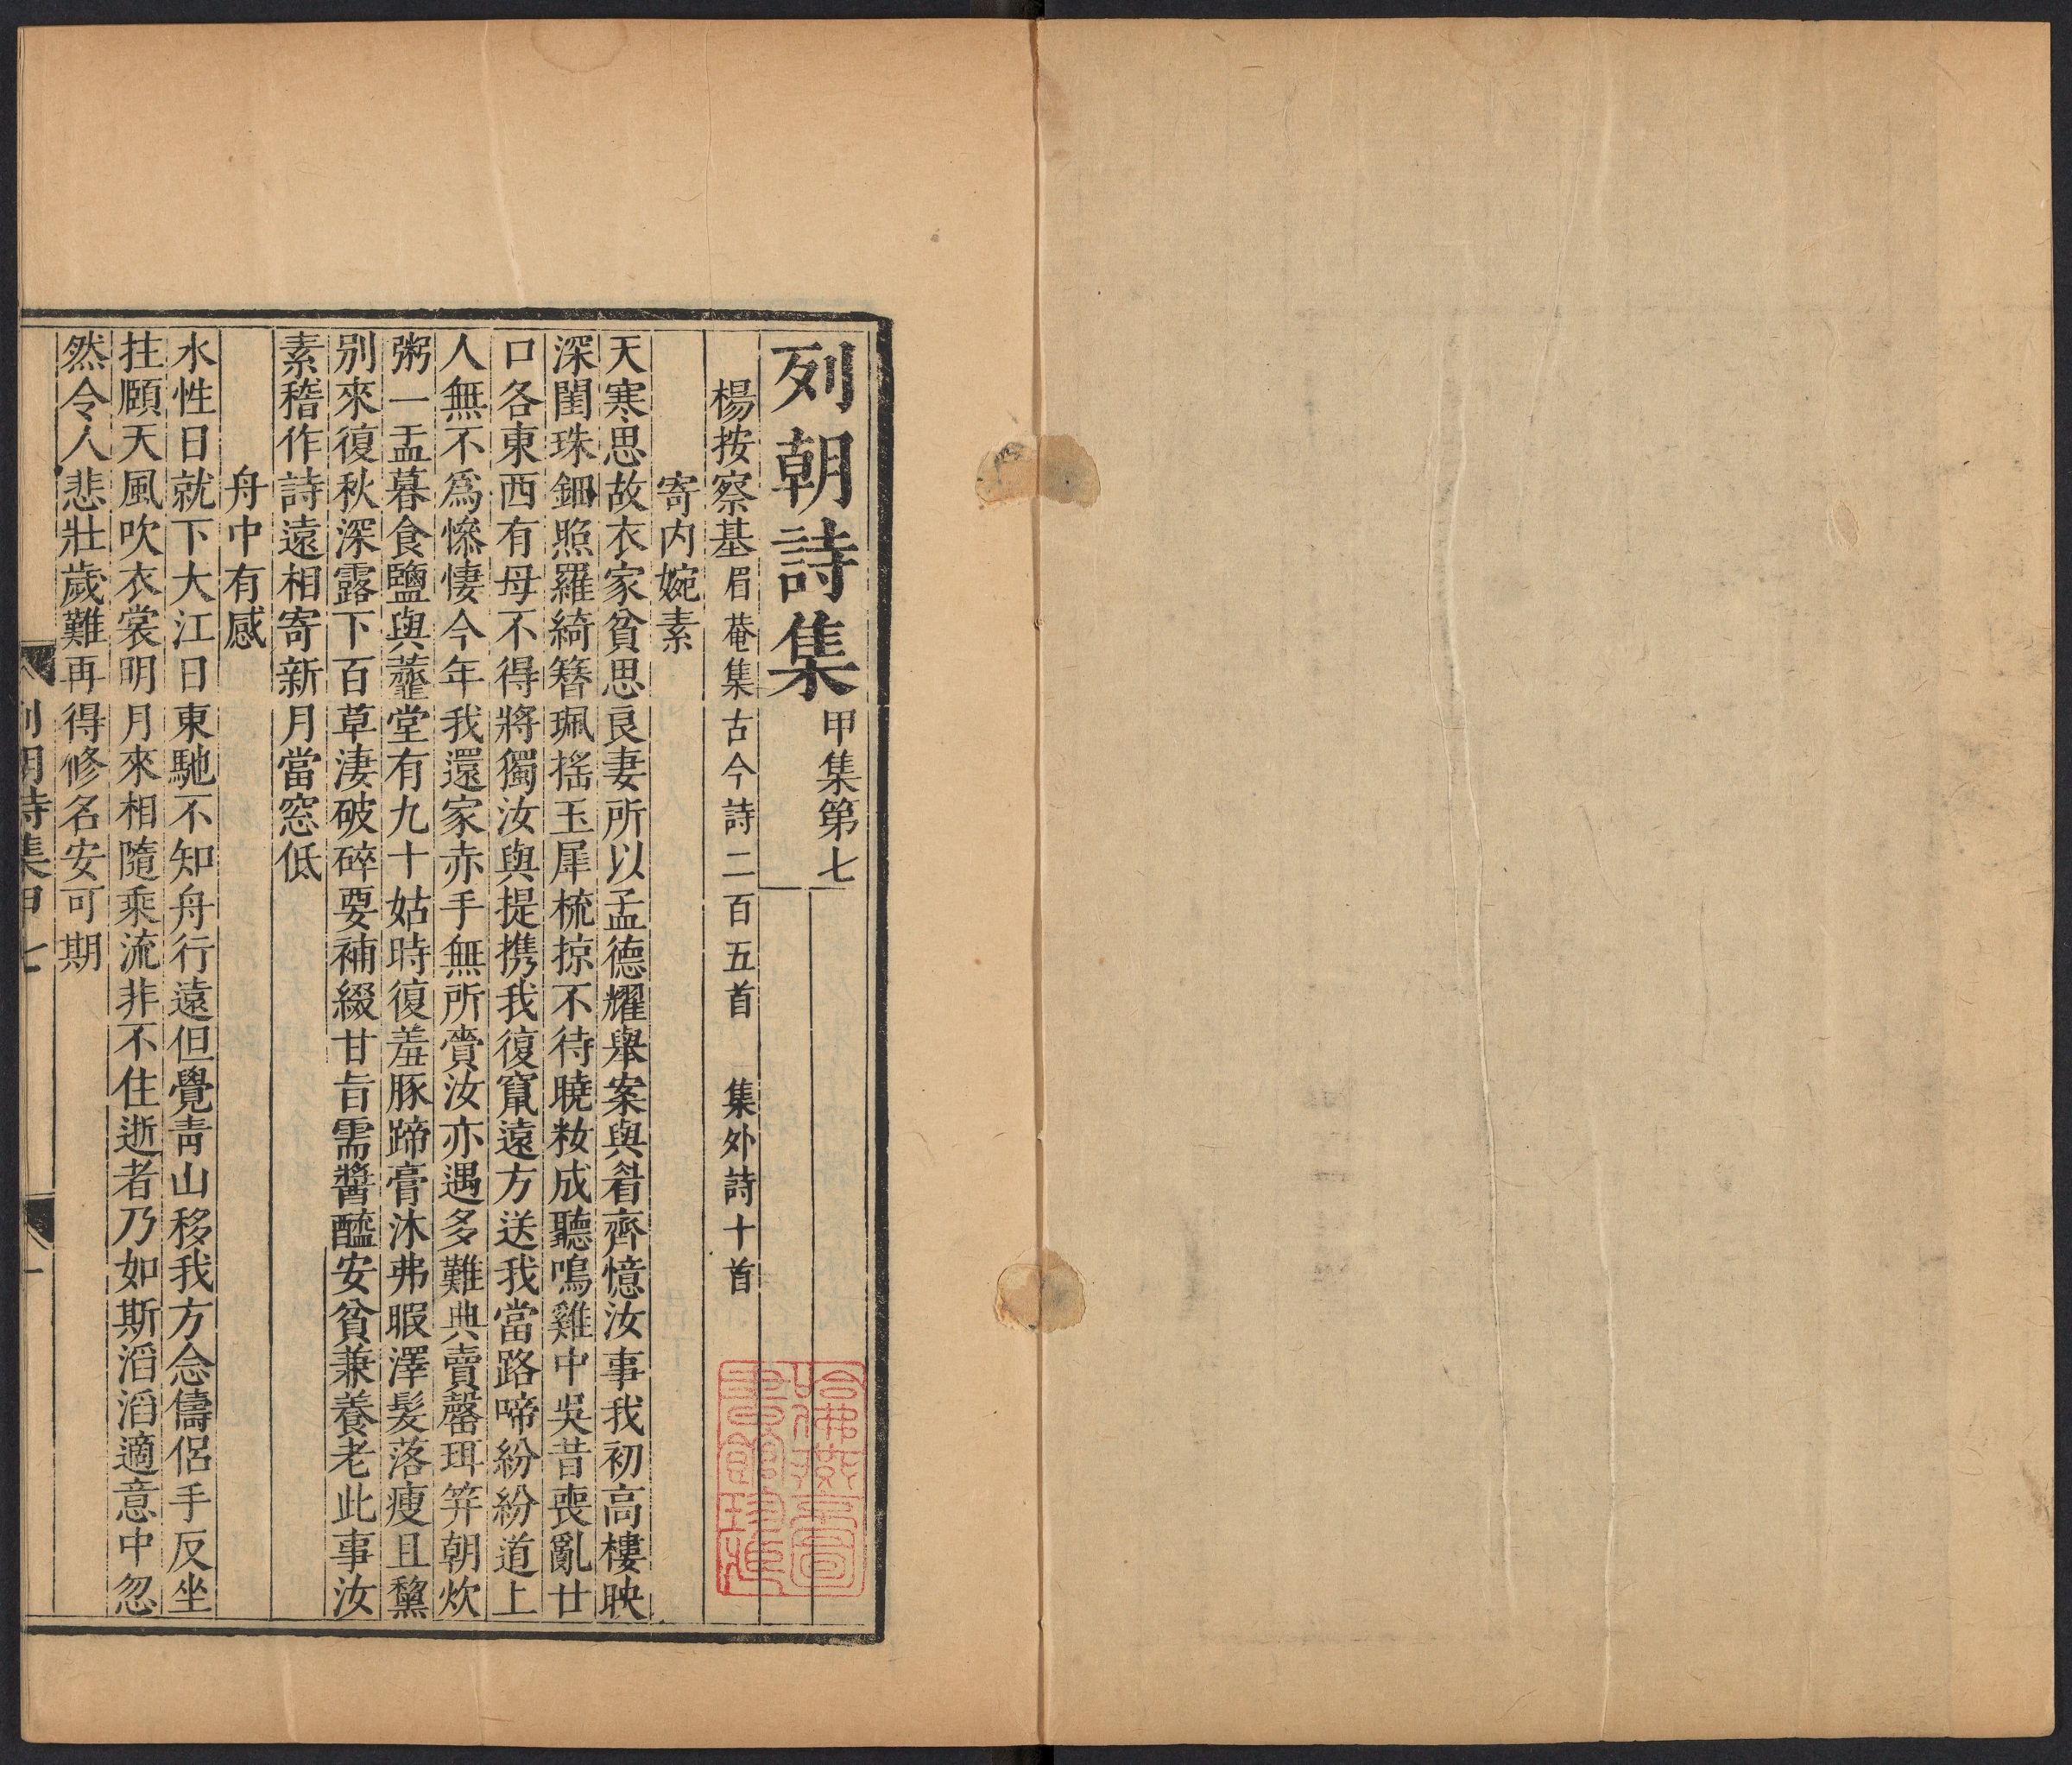 列朝詩集
甲集第七
楊按察基眉菴集古今詩二百五首　集外詩十首
寄内婉素
天寒思故衣家貧思良妻所以孟德耀舉案與眉齊憶汝事我初高樓映
深閨珠鈿照羅綺簪珮搖玉犀梳掠不待曉妝成聽鳴雞中吳昔喪亂廿
口各東西有母不得將獨汝與提携我復竄遠方送我當路啼紛紛道上
人無不爲慘悽今年我還家赤手無所賫汝亦遇多難典賣罄珥笄朝炊
粥一盂暮食鹽與虀堂有九十姑時復羞豚蹄膏沐弗暇澤髮落瘦且黧
别來復秋深露下百草淒破碎要補綴甘旨需醬醯安貧兼養老此事汝
素稽作詩遠相寄新月當窓低
舟中有感
水性日就下大江日東馳不知舟行遠但覺靑山移我方念儔侣手反坐
拄頤天風吹衣裳明月來相隨乘流非不住逝者乃如斯滔滔適意中忽
然令人悲壯歲難再得修名安可期
列朝詩集甲七
一
哈佛燕京圖
書館珍藏